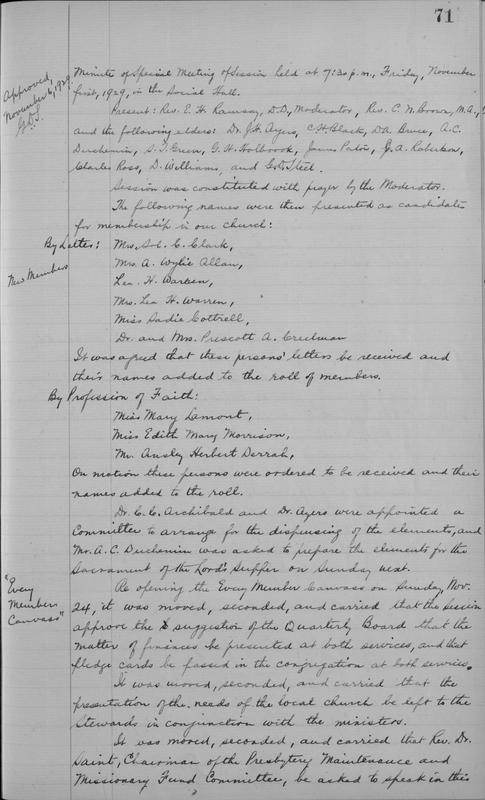 71
Approved,
November 6, 1929.
Minute of Special Meeting of Session held at 7:30 p.m., Friday, November
first, 1929, in the Social Hall.
Present: Rev. E. H. Ramsay, D.D., Moderator, Rev. C. N. Brown, M.A.,
and the following elders: Dr. J. H. Ayers, C. H. Black, D. A. Bruce, A. C.
Duchemin, S. T. Green, G. H. Holbrook, James Paton, J. A. Robertson,
Charles Ross, D. Williams, and Geo. Steel.
Session was constituted with prayer by the Moderator.
The following names were then presented as candidates
for membership in our church:
By Letter: Mrs. C. Clark,
New Members
Mrs. A. Wylie Allan,
Lea. H. Warren,
Mrs. Lea H. Warren,
Miss Sadie Cottrell,
Dr. and Mrs. Prescott A. Creelman
It was agreed that these persons' letters be received and
their names added to the roll of members.
By Profession of Faith:
Miss Mary Lamont,
Miss Edith Mary Morrison,
Mr. Ansley Herbert Derrah,
On motion these persons were ordered to be received and their
names added to the roll.
Dr. C. C. Archibald and Dr. Ayers were appointed a
Committee to arrange for the dispensing of the elements, and
Mr. A. C. Duchemin was asked to prepare the elements for the
Sacrament of the Lord's Supper on Sunday next.
"Every
Member
Canvass"
Re opening the Every Member Canvass on Sunday, Nov.
24, it was moved, seconded, and carried that the Session
approve the suggestion of the Quarterly Board that the
matter of finances be presented at both services, and that
pledge cards be passed in the congregation at both services.
It was moved, seconded, and carried that the
presentation of the needs of the local church be left to the
Stewards in conjunction with the ministers.
It was moved, seconded, and carried that Rev. Dr.
Saint, Chairman of the Presbytery Maintenance and
Missionary Fund Committee, be asked to speak in this